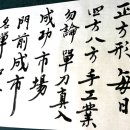 正方形每日
四方八方手工業
勿論單刀直入
成功市場
門前成市
名單